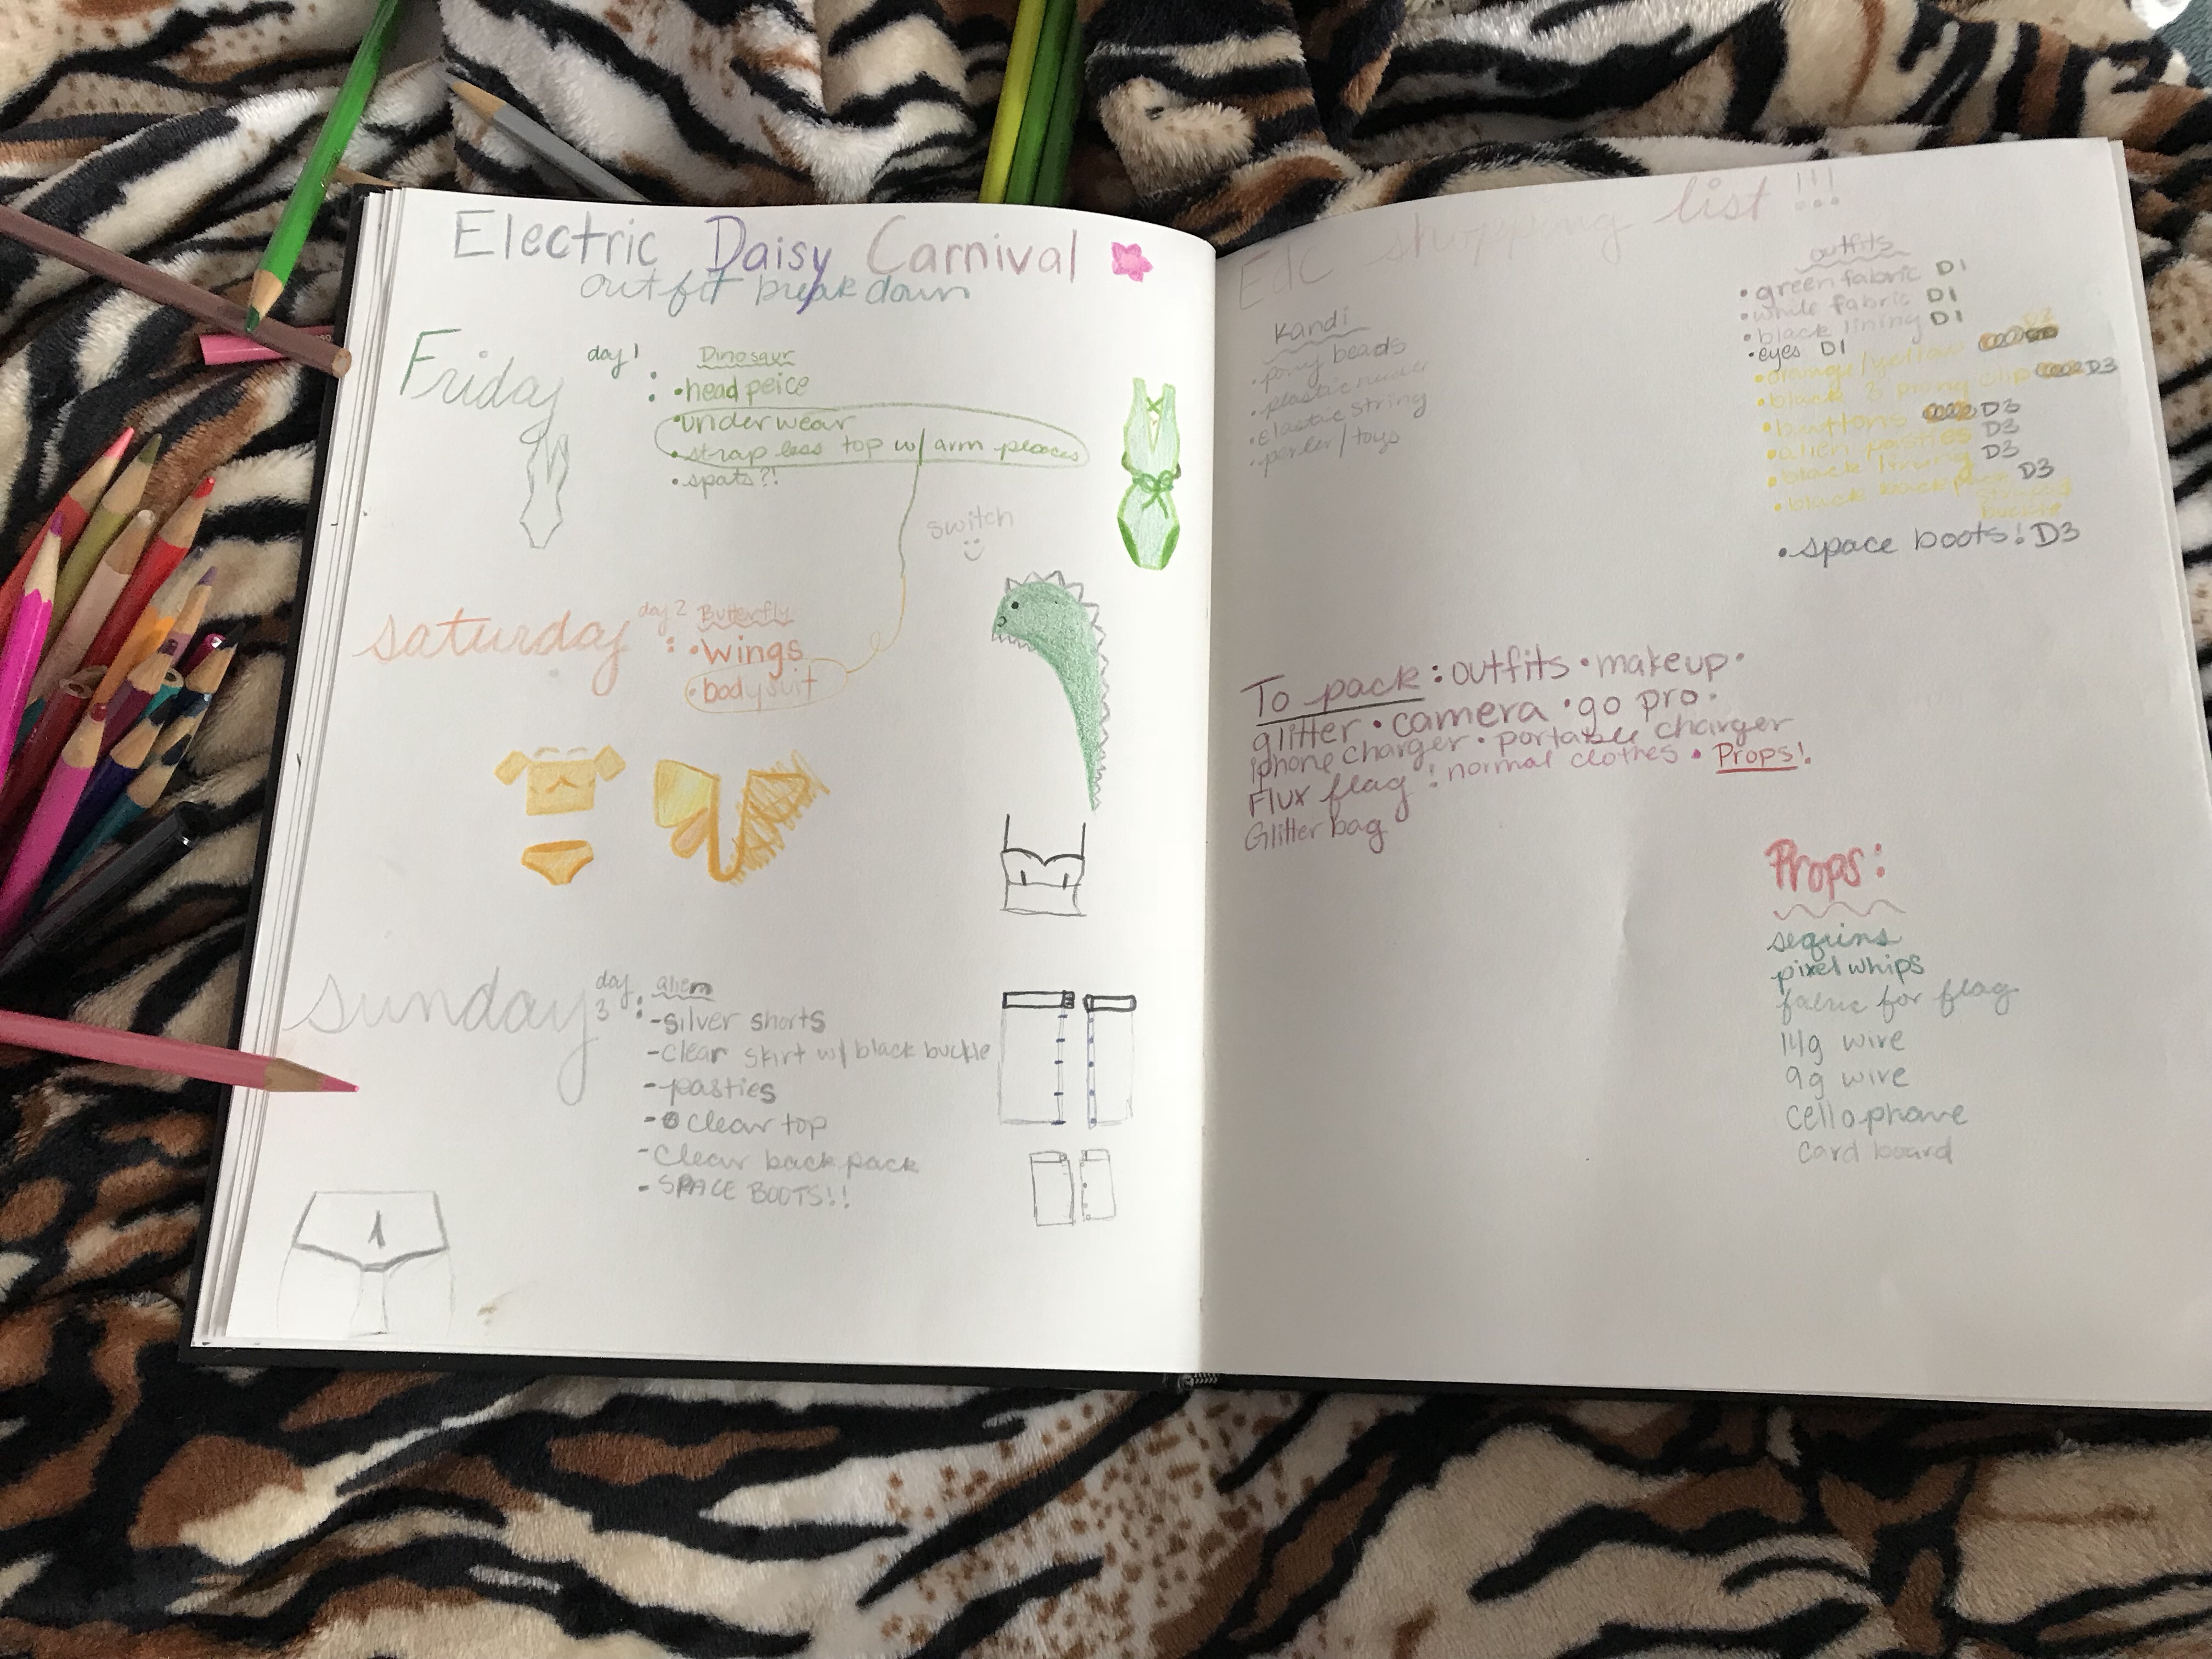 Electric Daisy Carnival
outfit break down
Friday
day 1
:
Dinosaur
•head peice
•underwear
•strap less top w/ arm pieces
•spats?!
switch
saturday
day 2
:
Butterfly
•wings
•bodysuit
sunday
day
3 :
alien
-silver shorts
-clear skirt w/ black buckle
-pasties
-clear top
-clear back pack
- SPACE BOOTS!!
EdC shopping list !!!
Kandi
•pony beads
•plastic
•elastic string
•perler/toys
outfits
•green fabric D1
•white fabric D1
•black lining D1
•eyes D1
•orange/yellow
•black 3 prong clip D3
•buttons D3
•alien pasties D3
•black lining D3
•black backpack D3
•space boots! D3
To pack: outfits •makeup•
glitter •camera •go pro•
iphone charger • portable charger
Flux flag : normal clothes • Props!
Glitter bag
Props:
sequins
pixel whips
fabric for flag
14g wire
9g wire
cellophane
card board